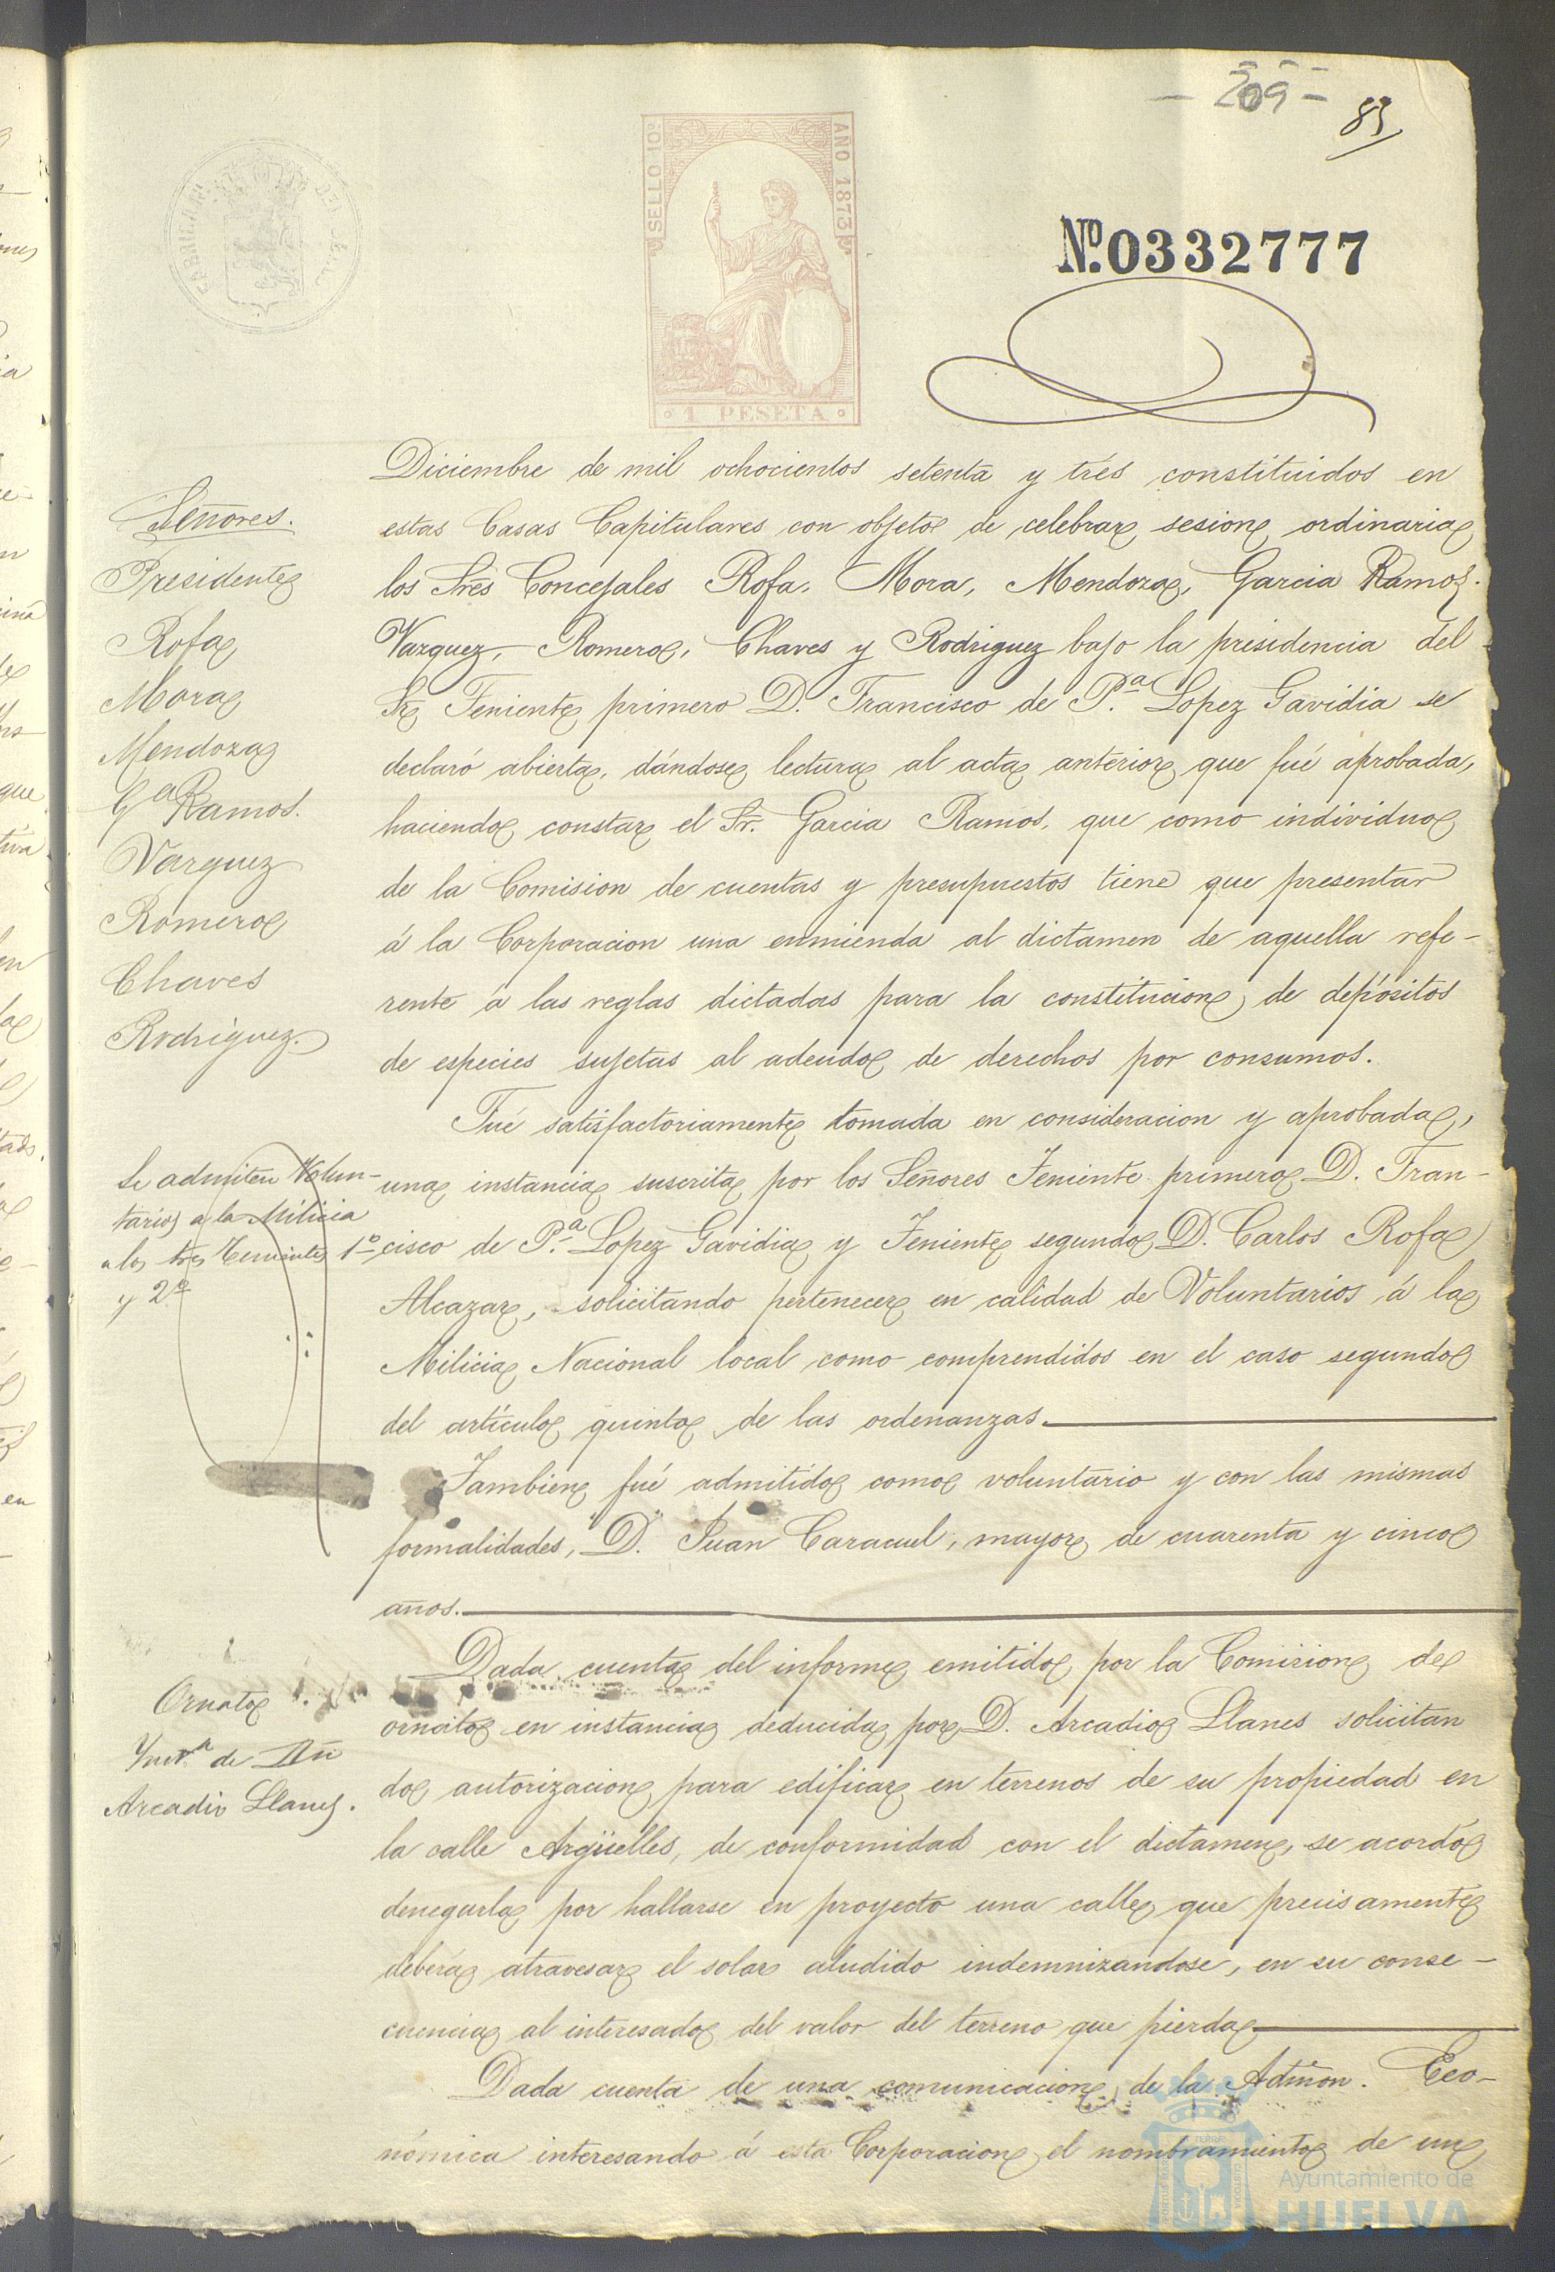 - 209 -
83
SELLO 10º
AÑO 1873
1 PESETA
Nº 0332777
Señores.
Presidente
Rofa
Mora
Mendoza
Gª Ramos.
Vazquez
Romero
Chaves
Rodriguez.
Diciembre de mil ochocientos setenta y trés constituidos en
estas Casas Capitulares con objeto de celebrar sesion ordinaria
los Sres Concejales Rofa, Mora, Mendoza, Garcia Ramos.
Vazquez, Romero, Chaves y Rodriguez bajo la presidencia del
Sr Teniente primero D. Francisco de P.ª Lopez Gavidia se
declaró abierta, dándose lectura al acta anterior que fué aprobada,
haciendo constar el Sr. Garcia Ramos, que como individuo
de la Comision de cuentas y presupuestos tiene que presentar
á la Corporacion una enmienda al dictamen de aquella refe-
rente á las reglas dictadas para la constitucion de depósitos
de especies sujetas al adeudo de derechos por consumos.
Fué satisfactoriamente tomada en consideracion y aprobada,
una instancia suscrita por los Señores Teniente primero D. Fran-
cisco de P.ª Lopez Gavidia y Teniente segundo D. Carlos Rofa
Alcazar, solicitando pertenecer en calidad de Voluntarios á la
Milicia Nacional local como comprendidos en el caso segundo
del artículo quinto de las ordenanzas.
Se admiten Volun-
tarios a la Milicia
a los tres Tenientes 1º
y 2º
Tambien fué admitido como voluntario y con las mismas
formalidades, D. Juan Caracuel, mayor de cuarenta y cinco
años.
Dada cuenta del informe emitido por la Comision de
ornato en instancia deducida por D. Arcadio Llanes solicitan
do autorizacion para edificar en terrenos de su propiedad en
la calle Argüelles, de conformidad con el dictamen, se acordó
denegarla por hallarse en proyecto una calle que precisamente
deberá atravesar el solar aludido indemnizandose, en su conse-
cuencia al interesado del valor del terreno que pierda
Ornato
Ynstª de Dn
Arcadio Llanes.
Dada cuenta de una comunicacion de la Admon. Eco-
nómica interesando á esta Corporacion el nombramiento de un
Ayuntamiento de
HUELVA